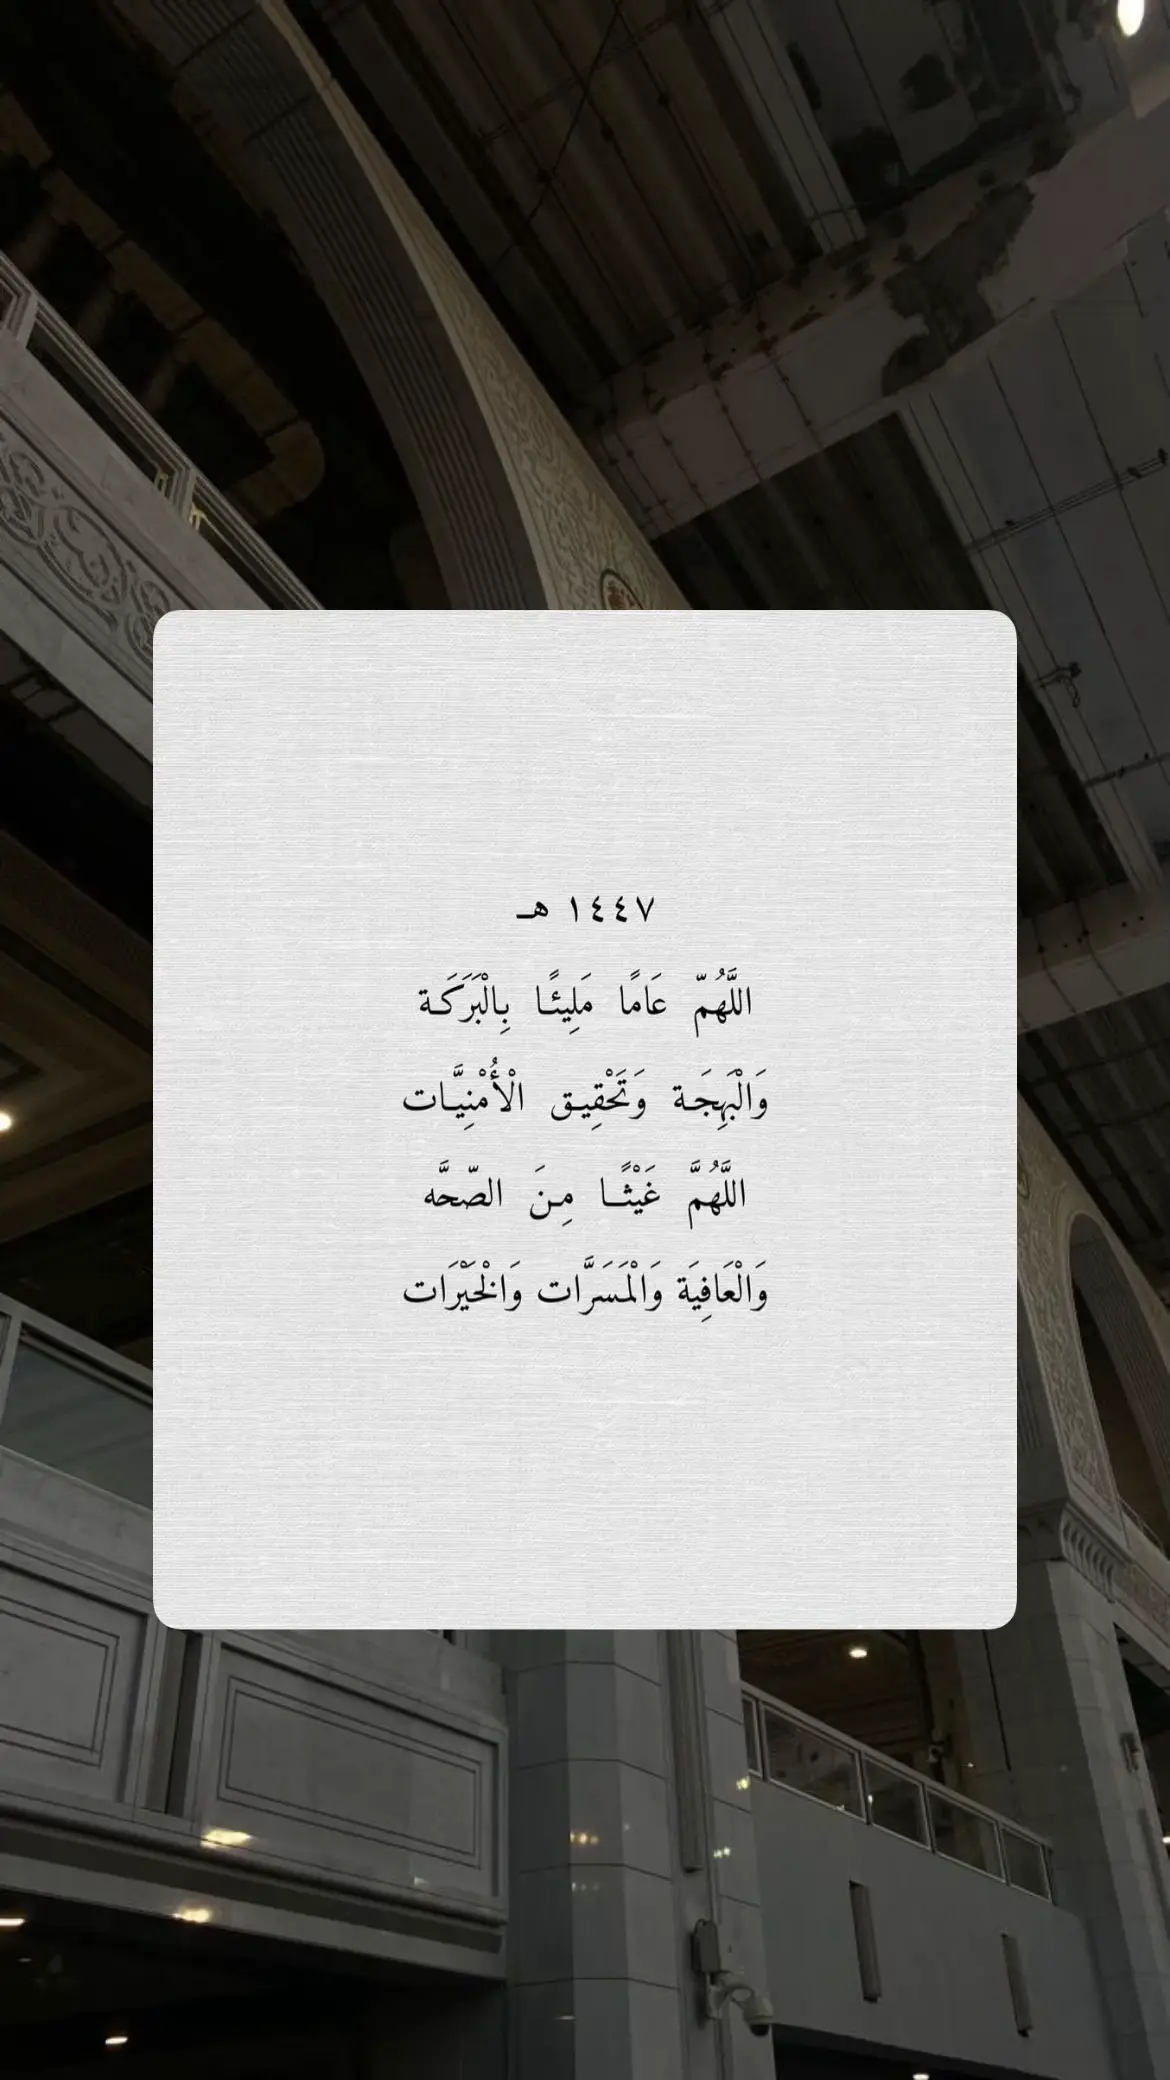 ١٤٤٧ هـ
اللَّهُمّ عَامًا مَلِيئًا بِالْبَرَكَة
وَالْبَهِجَة وَتَحْقِيق الْأُمْنِيَّات
اللَّهُمَّ غَيْثًا مِنَ الصّحَّه
وَالْعَافِيَة وَالْمَسَرَّات وَالْخَيْرَات